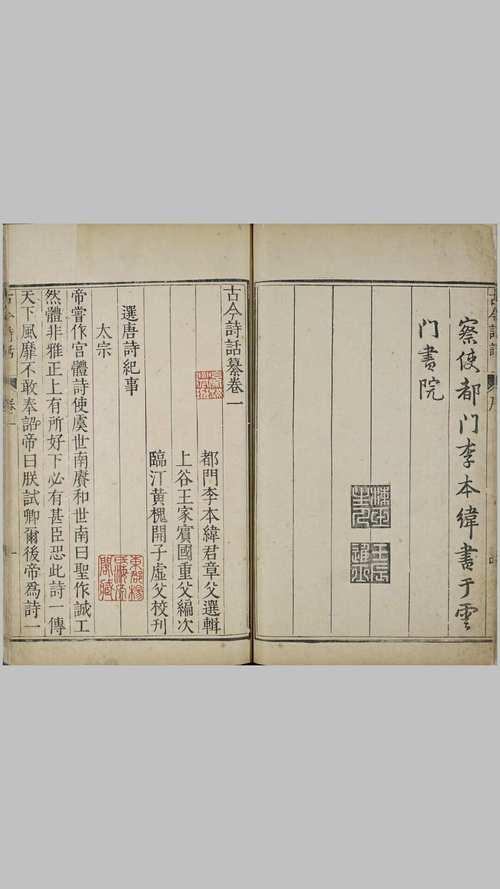 察使都門李本緯書于雲
門書院
古今詩話纂卷一
都門李本緯君章父選輯
上谷王家賓國重父編次
臨汀黄槐開子虛父校刊
選唐詩紀事
太宗
帝嘗作宮體詩使虞世南賡和世南曰聖作誠工
然體非雅正上有所好下必有甚臣恐此詩一傳
天下風靡不敢奉詔帝曰朕試卿爾後帝爲詩一
古今詩話 卷一